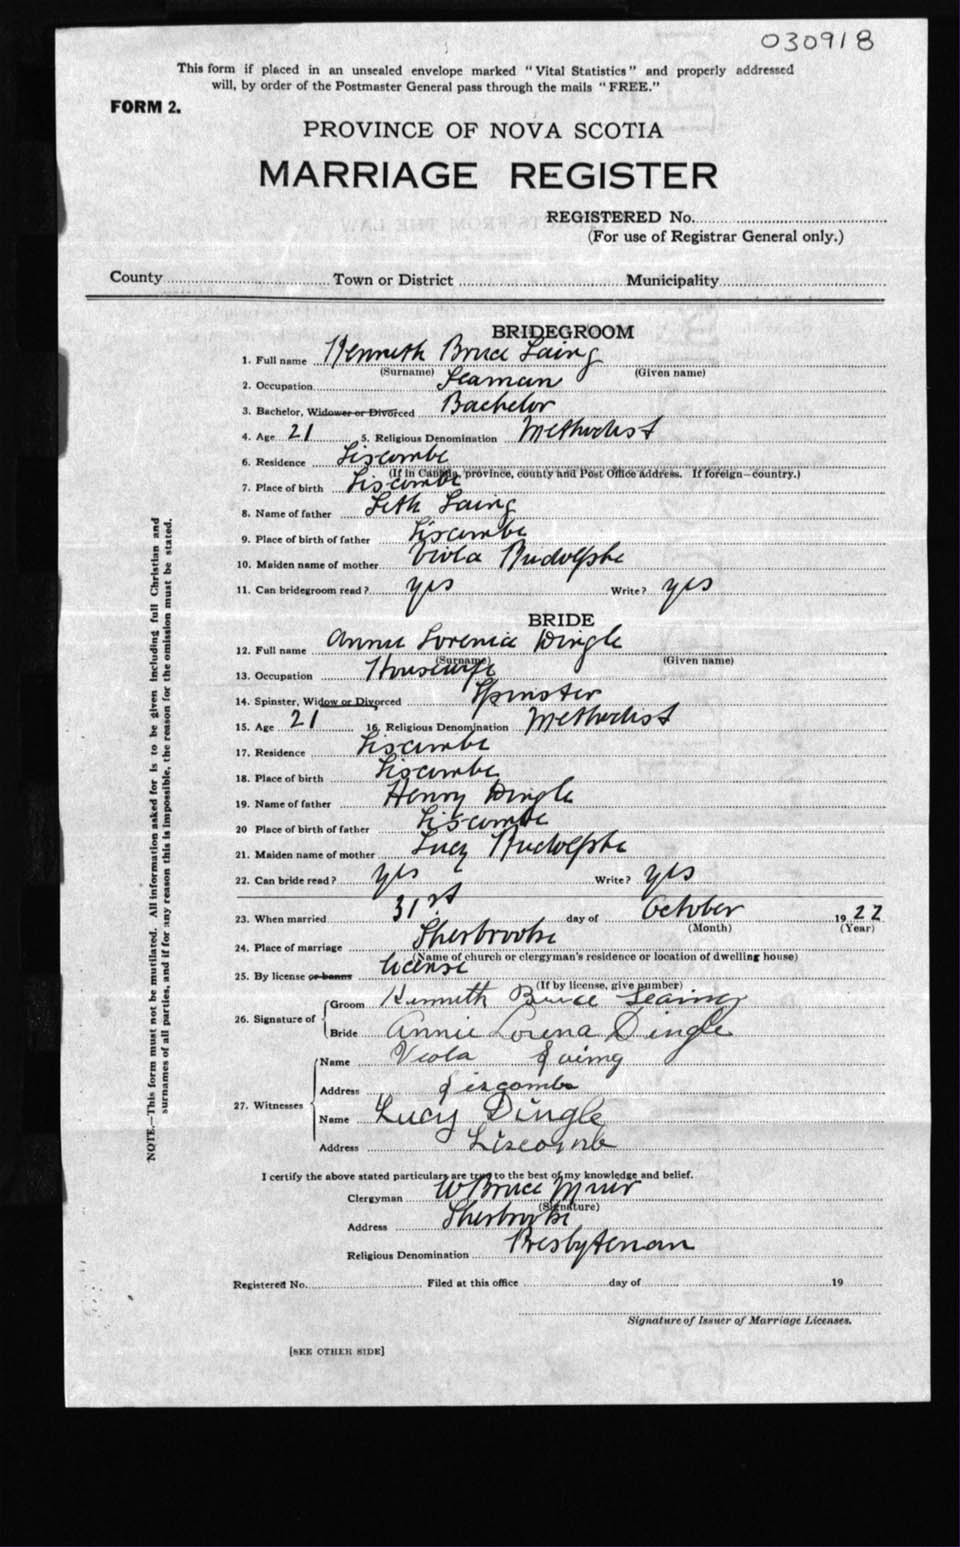 030918
This form if placed in an unsealed envelope marked "Vital Statistics" and properly addressed
will, by order of the Postmaster General pass through the mails "FREE."
FORM 2.
PROVINCE OF NOVA SCOTIA
MARRIAGE REGISTER
REGISTERED No.
(For use of Registrar General only.)
County Town or District Municipality
BRIDEGROOM
1. Full name Kenneth Bruce Laing
(Surname) (Given name)
2. Occupation Seaman
3. Bachelor, Widower or Divorced Bachelor
4. Age 21 5. Religious Denomination Methodist
6. Residence Liscombe
(If in Canada, province, county and Post Office address. If foreign—country.)
7. Place of birth Liscombe
8. Name of father Seth Laing
9. Place of birth of father Liscombe
10. Maiden name of mother Viola Rudolphe
11. Can bridegroom read? yes Write? yes
BRIDE
12. Full name Annie Lorenia Dingle
(Surname) (Given name)
13. Occupation Housewife
14. Spinster, Widow or Divorced Spinster
15. Age 21 16. Religious Denomination Methodist
17. Residence Liscombe
18. Place of birth Liscombe
19. Name of father Henry Dingle
20 Place of birth of father Liscombe
21. Maiden name of mother Lucy Rudolphe
22. Can bride read? yes Write? yes
23. When married 31st day of October 1922
(Month) (Year)
24. Place of marriage Sherbrooke
(Name of church or clergyman's residence or location of dwelling house)
25. By license or banns license
(If by license, give number)
26. Signature of Groom Kenneth Bruce Leaing
Bride Annie Lorena Dingle
27. Witnesses Name Viola Laing
Address Liscombe
Name Lucy Dingle
Address Liscomb
I certify the above stated particulars are true to the best of my knowledge and belief.
Clergyman W Bruce Muir
(Signature)
Address Sherbrooke
Religious Denomination Presbyterian
Registered No. Filed at this office day of 19
Signature of Issuer of Marriage Licenses.
[SEE OTHER SIDE]
NOTE.—This form must not be mutilated. All information asked for is to be given including full Christian and
surnames of all parties, and if for any reason this is impossible, the reason for the omission must be stated.